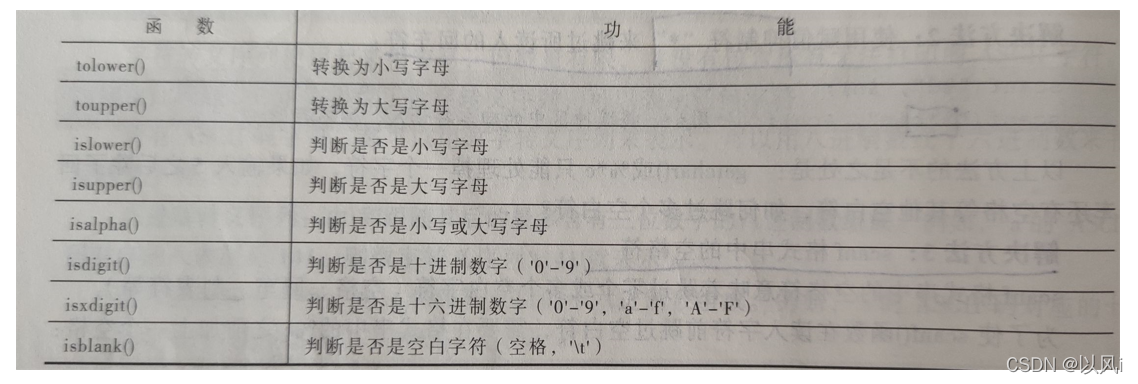 函 数 功 能
tolower() 转换为小写字母
toupper() 转换为大写字母
islower() 判断是否是小写字母
isupper() 判断是否是大写字母
isalpha() 判断是否是小写或大写字母
isdigit() 判断是否是十进制数字（'0'–'9'）
isxdigit() 判断是否是十六进制数字（'0'–'9'，'a'–'f'，'A'–'F'）
isblank() 判断是否是空白字符（空格，'\t'）
CSDN @以风i